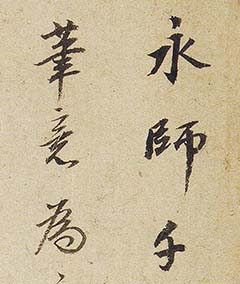 永師千
筆意為